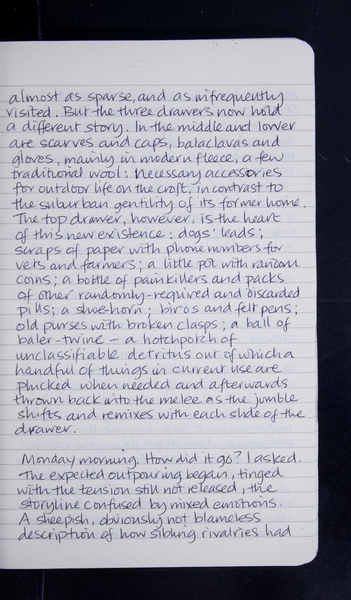 almost as sparse, and as infrequently
visited. But the three drawers now hold
a different story. In the middle and lower
are scarves and caps, balaclavas and
gloves, mainly in modern fleece, a few
traditional wool: necessary accessories
for outdoor life on the croft, in contrast to
the suburban gentility of its former home.
The top drawer, however, is the heart
of this new existence: dogs' leads;
scraps of paper with phone numbers for
vets and farmers; a little pot with random
coins; a bottle of painkillers and packs
of other randomly-required and discarded
pills; a shoe-horn; biros and felt pens;
old purses with broken clasps; a ball of
baler-twine – a hotchpotch of
unclassifiable detritus out of which a
handful of things in current use are
plucked when needed and afterwards
thrown back into the melee as the jumble
shifts and remixes with each slide of the
drawer.
Monday morning. How did it go? I asked.
The expected outpouring began, tinged
with the tension still not released, the
storyline confused by mixed emotions.
A sheepish, obviously not blameless
description of how sibling rivalries had